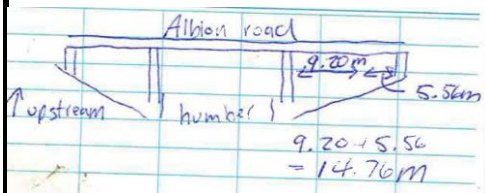 Albion road
9.20m
5.56m
↑ upstream
humber
9.20 + 5.56
= 14.76m